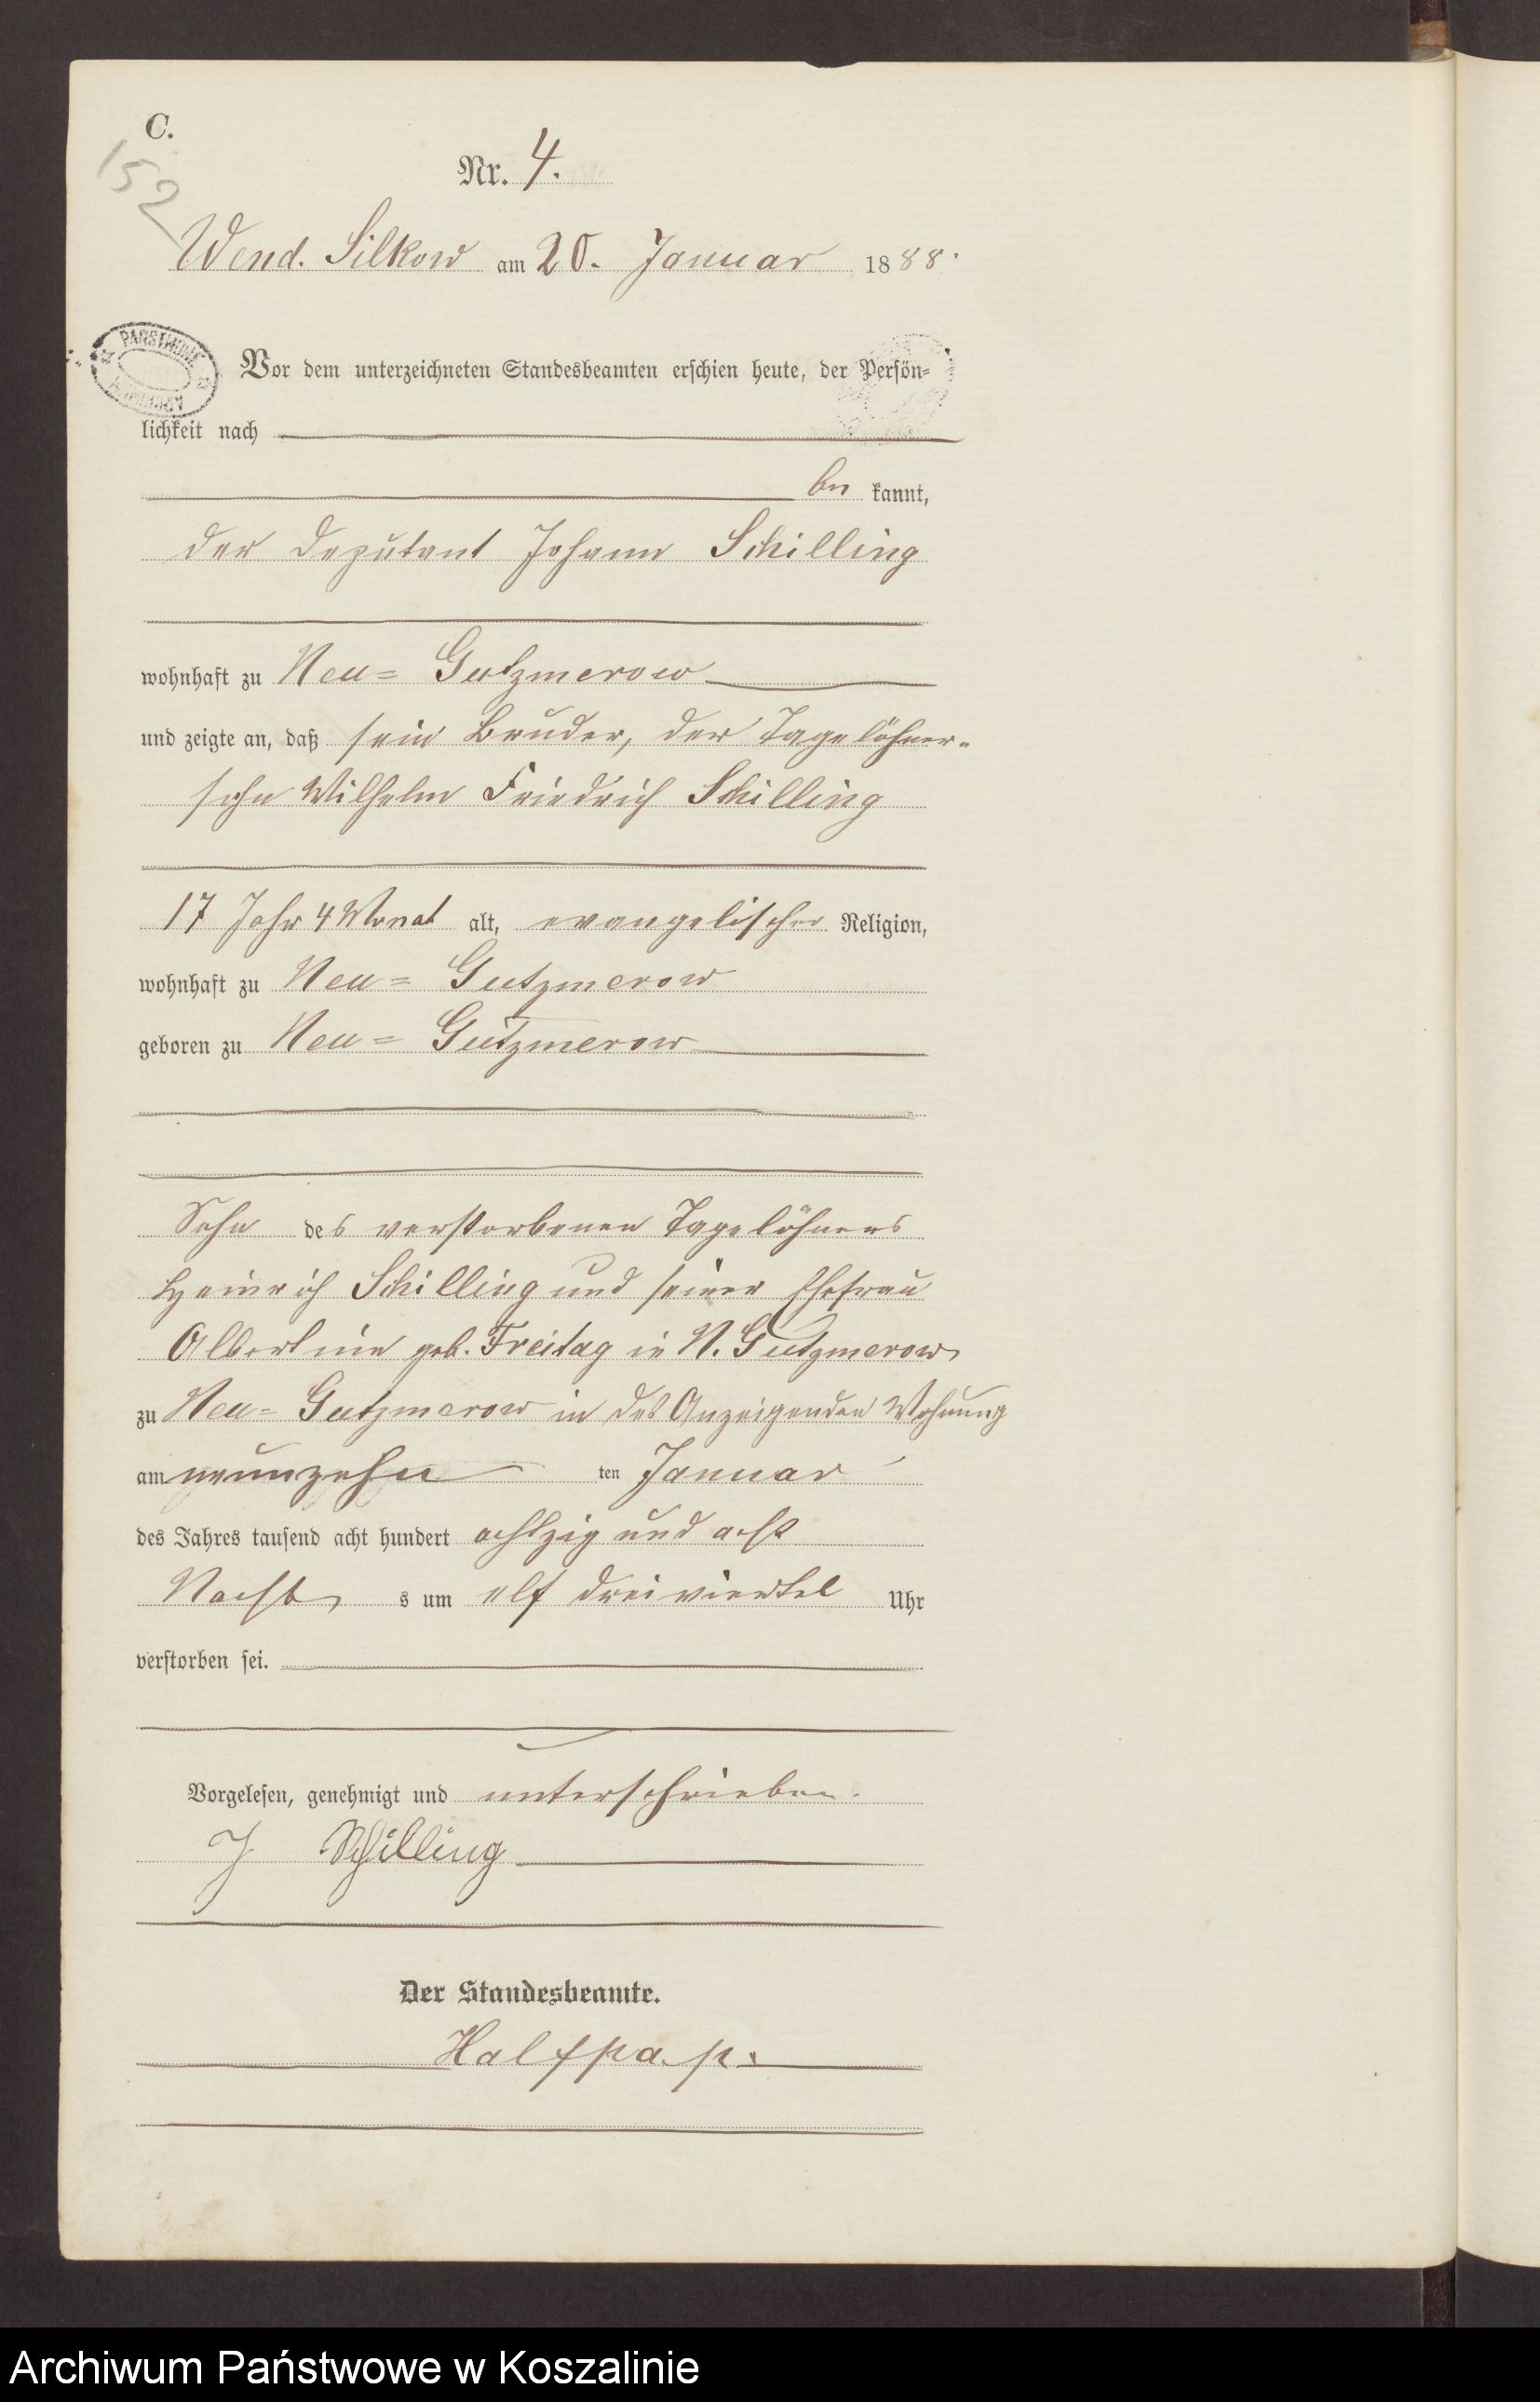 C.
152
Nr. 4.
Wend. Silkow am 20. Januar 1888.
PAŃSTWOWE ARCHIWUM
Vor dem unterzeichneten Standesbeamten erschien heute, der Persön-
lichkeit nach
be kannt,
der Deputant Johann Schilling
wohnhaft zu Neu= Gutzmerow
und zeigte an, daß sein Bruder, der Tagelöhner-
sohn Wilhelm Friedrich Schilling
17 Jahr 4 Monat alt, evangelischer Religion,
wohnhaft zu Neu= Gutzmerow
geboren zu Neu= Gutzmerow
Sohn des verstorbenen Tagelöhners
Heinrich Schilling und seiner Ehefrau
Albertine geb. Freitag in N. Gutzmerow
zu Neu= Gutzmerow in des Anzeigenden Wohnung
am neunzehn ten Januar
des Jahres tausend acht hundert achtzig und acht
Nacht s um elf dreiviertel Uhr
verstorben sei.
Vorgelesen, genehmigt und unterschrieben.
J Schilling
Der Standesbeamte.
Halfpap.
Archiwum Państwowe w Koszalinie